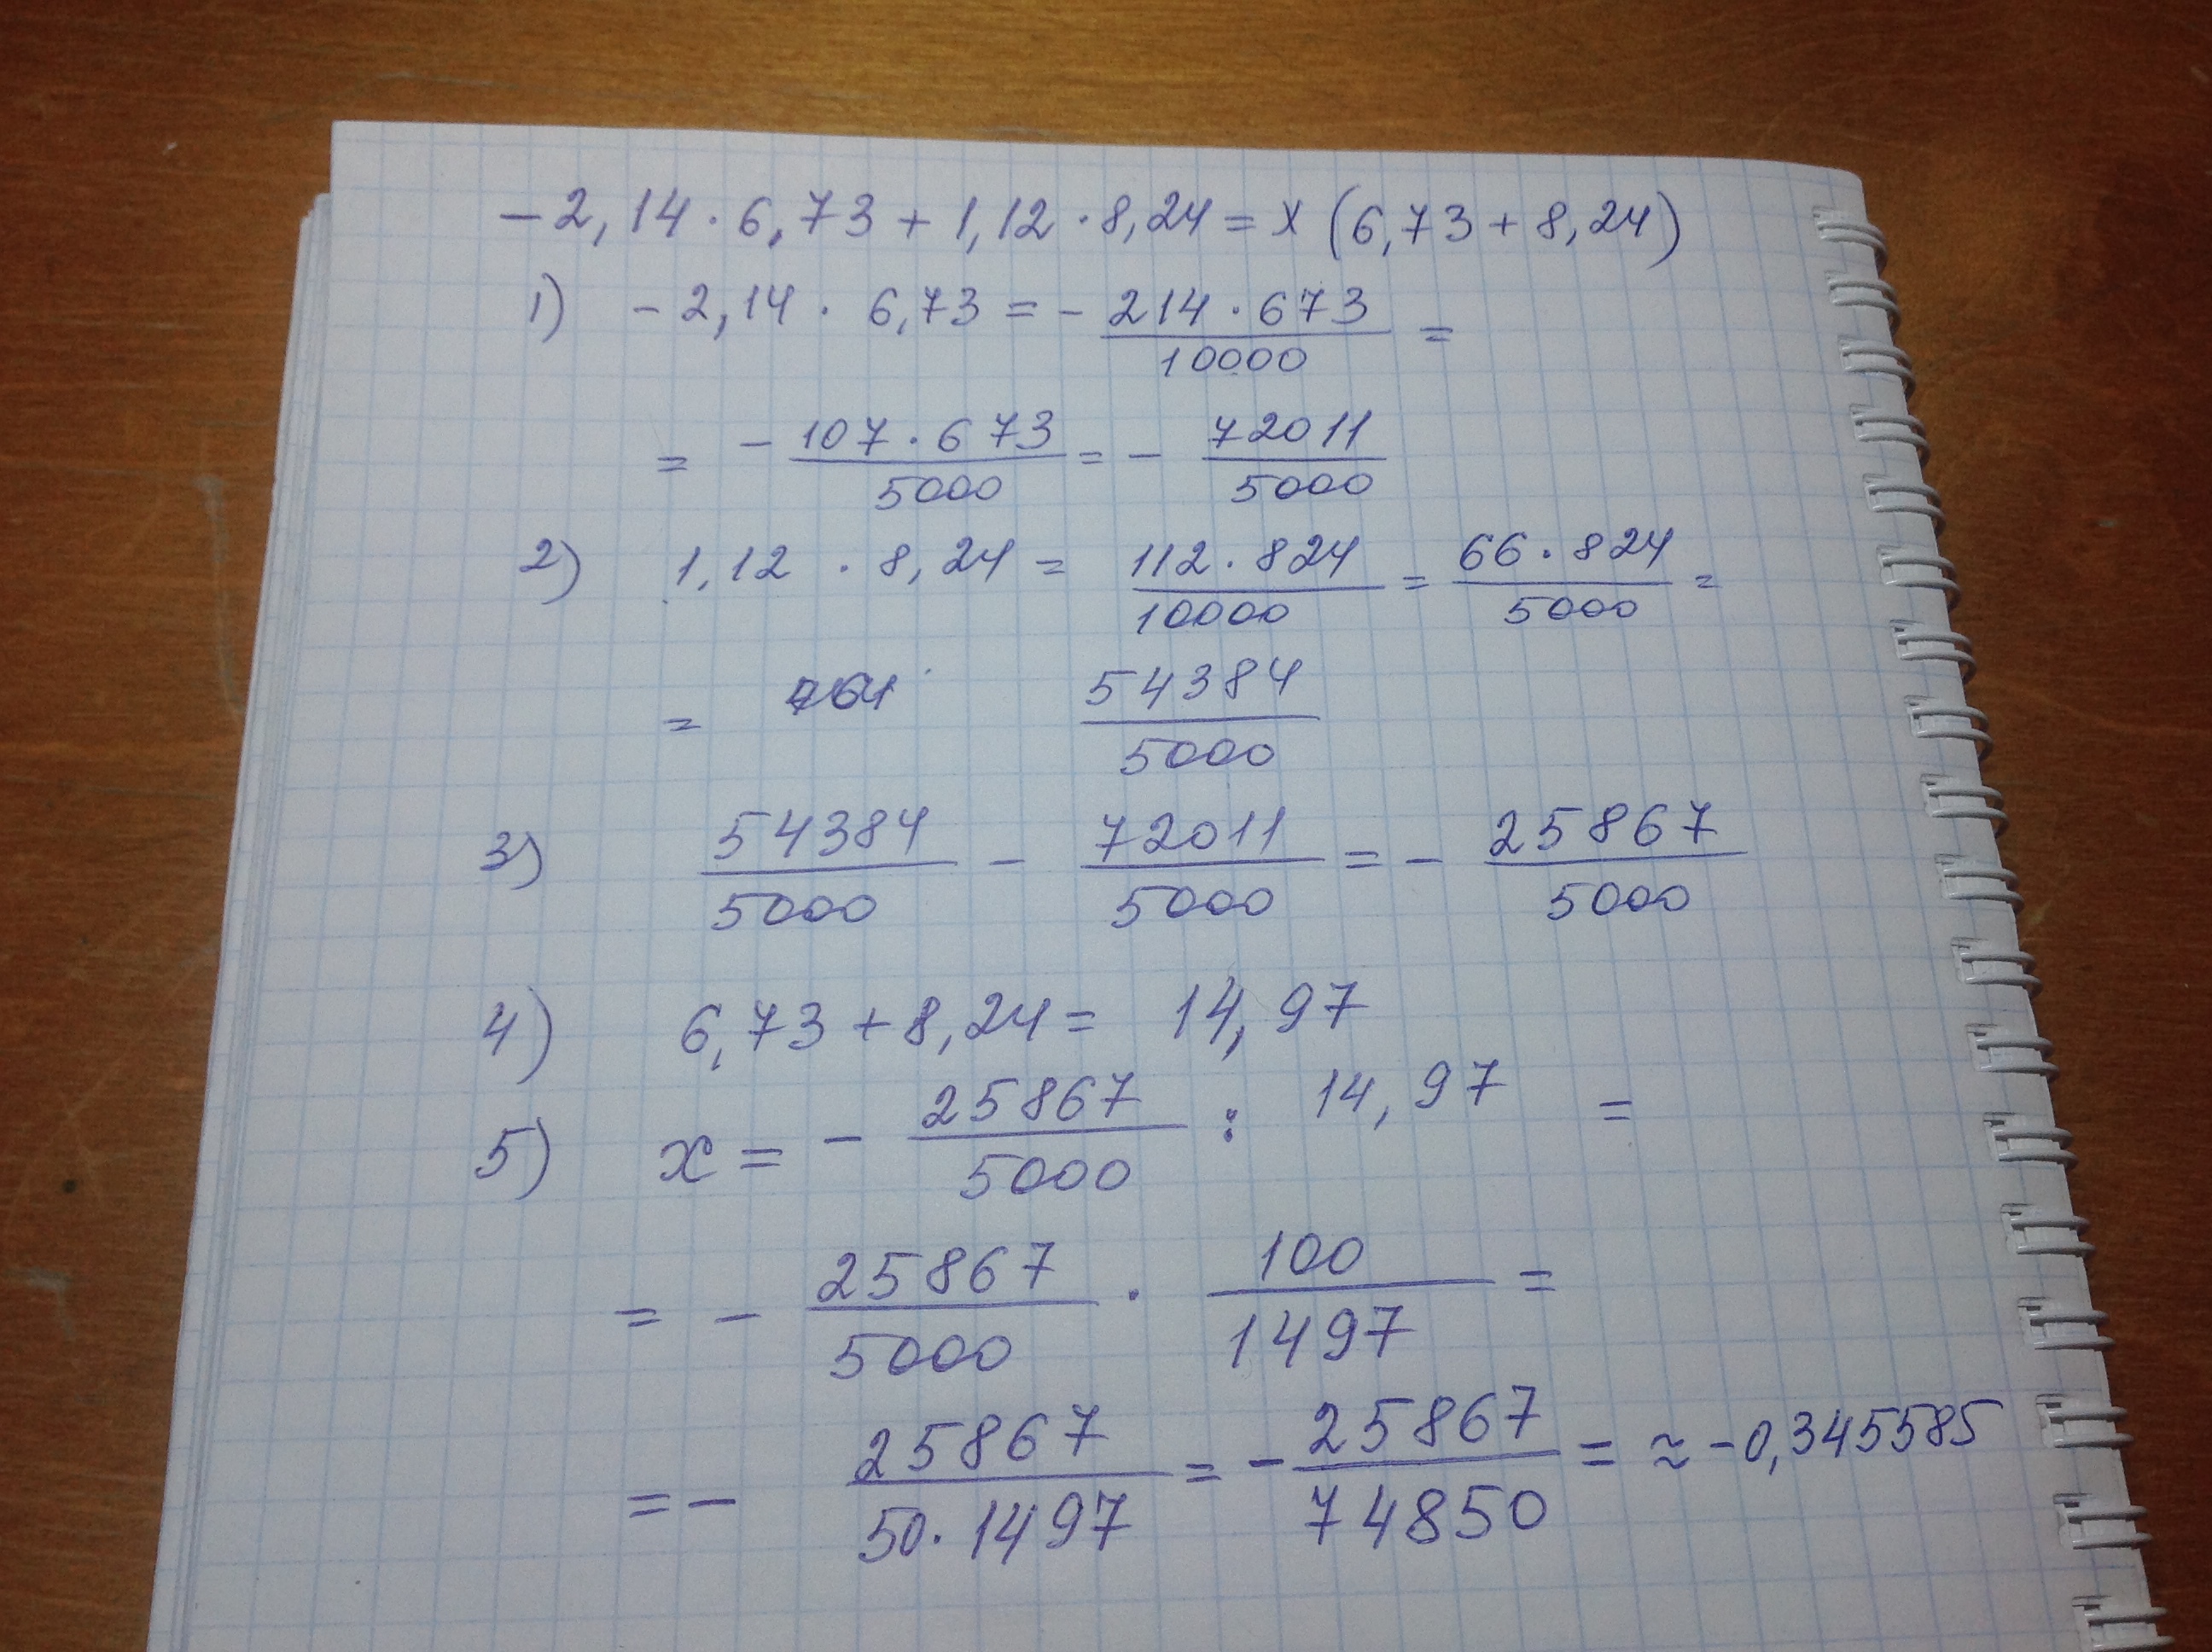 -2,14 · 6,73 + 1,12 · 8,24 = x (6,73 + 8,24)
1) -2,14 · 6,73 = - 214 · 673 / 10000 =
= - 107 · 673 / 5000 = - 72011 / 5000
2) 1,12 · 8,24 = 112 · 824 / 10000 = 66 · 824 / 5000 =
= 54384 / 5000
3) 54384 / 5000 - 72011 / 5000 = - 25867 / 5000
4) 6,73 + 8,24 = 14,97
5) x = - 25867 / 5000 : 14,97 =
= - 25867 / 5000 · 100 / 1497 =
= - 25867 / 50 · 1497 = - 25867 / 74850 = ≈ -0,345585